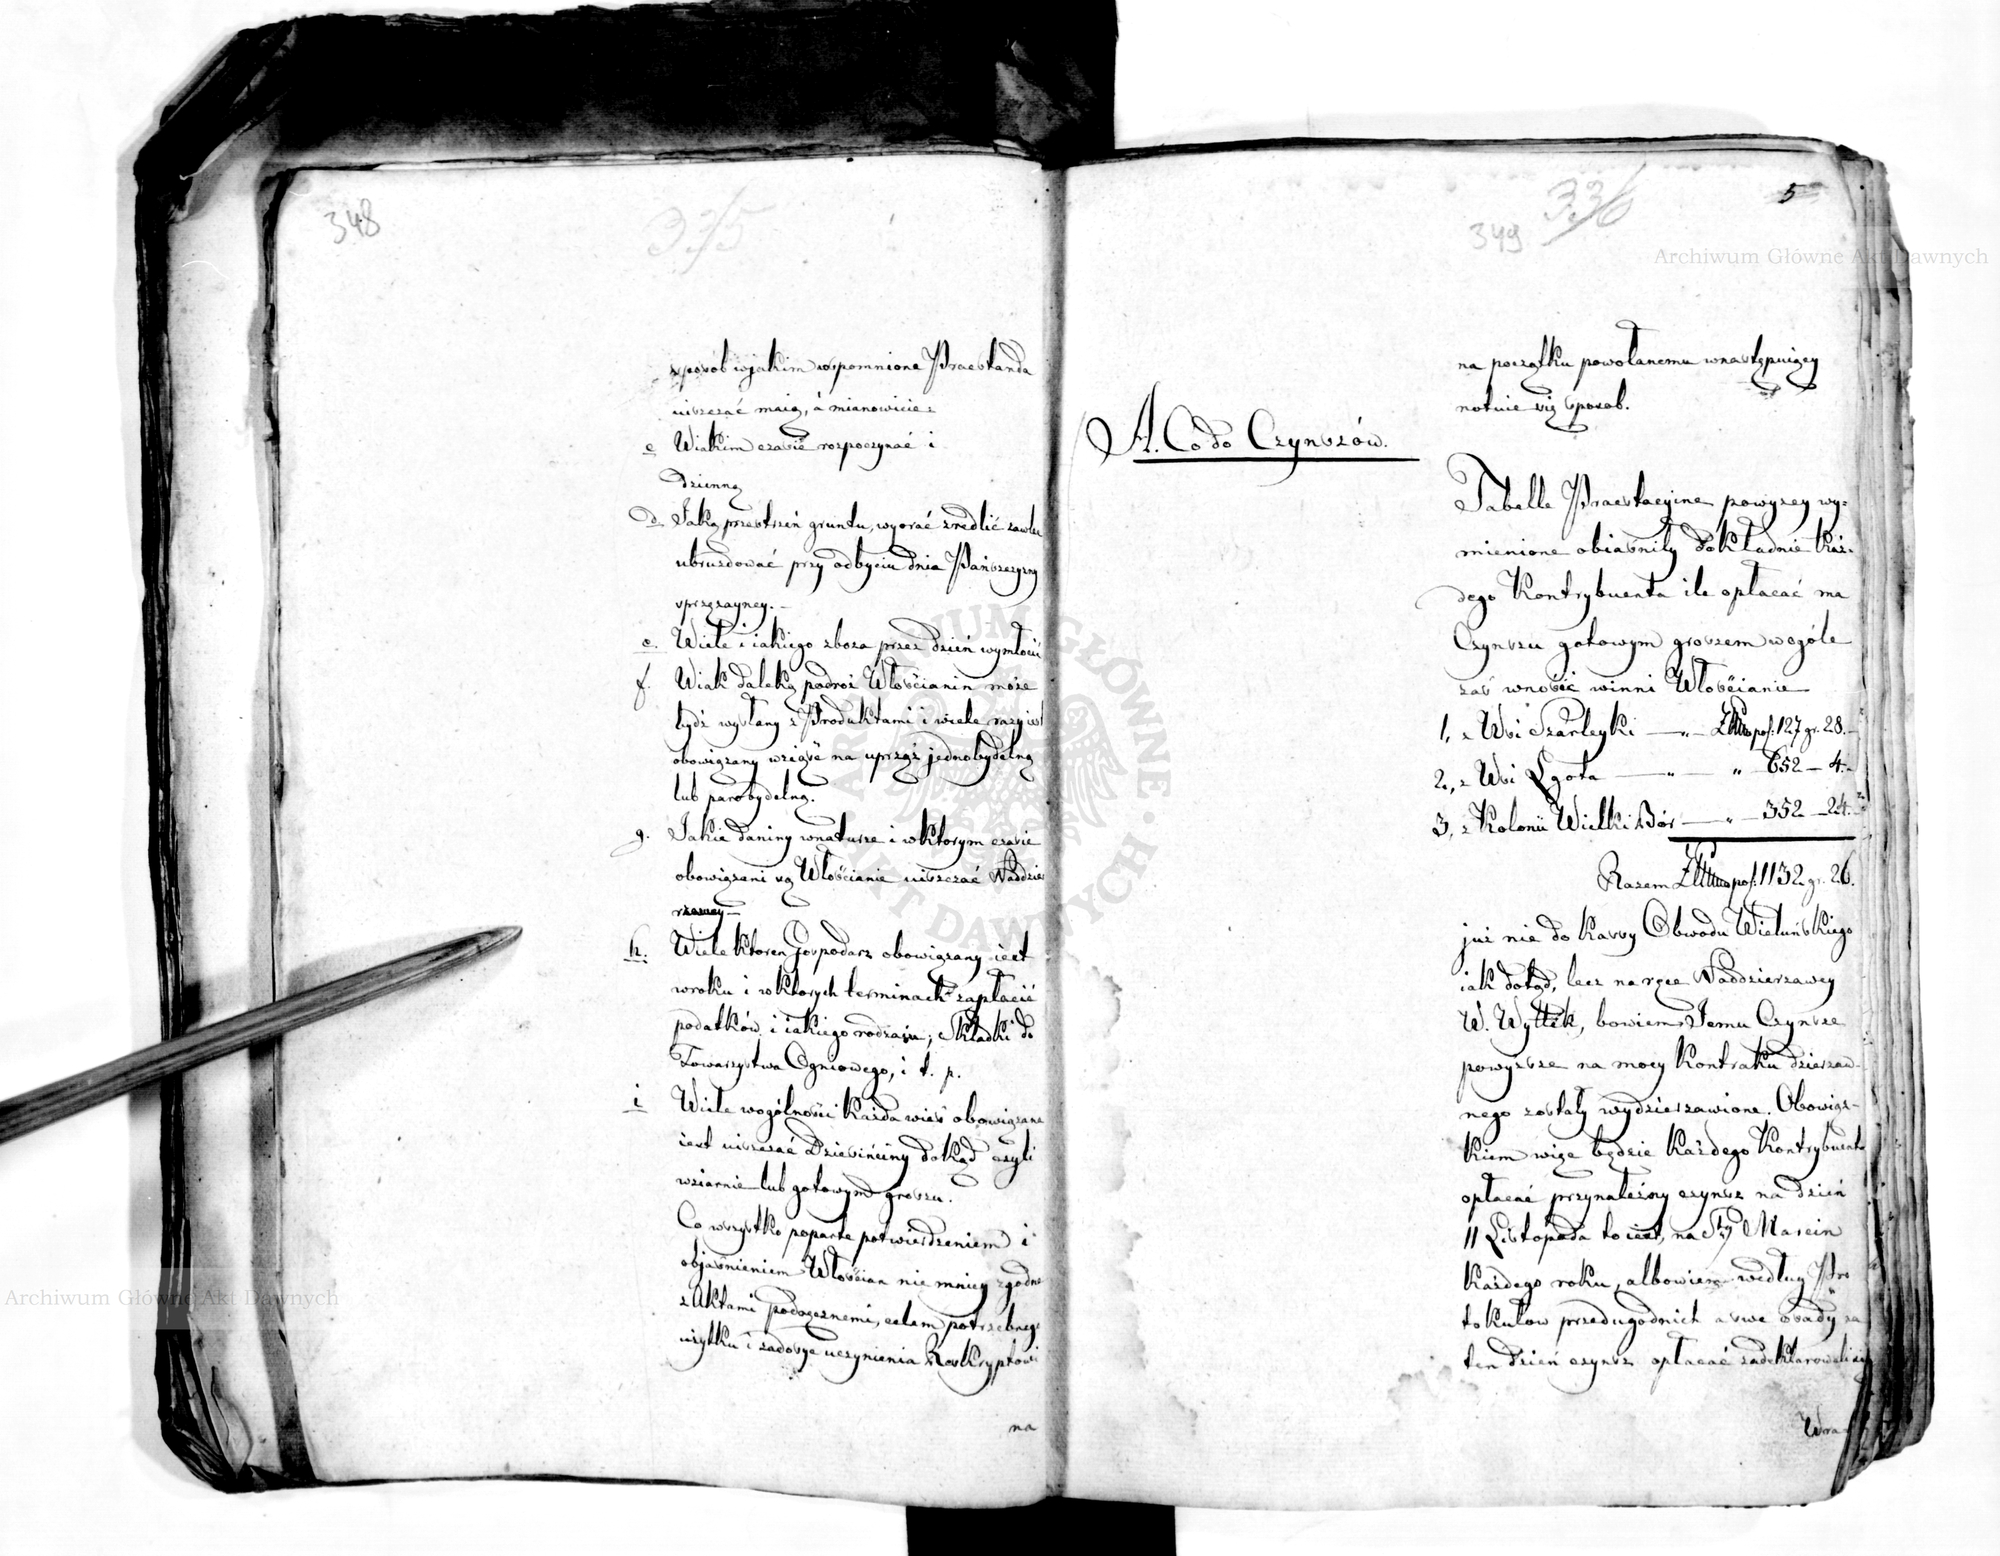 348
335
sposób wjakim wspomnione Praestanda
uiszczać maią, a mianowicie:
c Wiakim czasie rozpoczynać i
dzienną
d Jaką przestrzeń gruntu, wyorać zredlić zawlec
ubruzdować przy odbyciu dnia Pańszczyzny
sprzężayney. –
e. Wiele i iakiego zboża przez dzień wymłócić
f. Wiak daleką podroż Włościanin może
bydź wysłany z Produktami i wiele razy iest
obowiązany wziąść na uprząż jednobydelną
lub parobydelną.
g. Jakie daniny wnaturze i wktorym czasie
obowiązani są Włościanie uiszczać Naddzier
żawcy –
h. Wiele ktoren Gospodarz obowiązany iest
wroku i wktorych terminach zapłacić
podatków i iakiego rodzaju; Składki do
Towarzystwa Ogniowego, i t. p.
i Wiele wogólności Każda wieś obowiązana
iest uiszczać Dziesięciny dokąd czyli
wziarnie lub gotowym groszu.
Co wszystko poparte potwierdzeniem i
objaśnieniem Włościan nie mniey zgodne
z Aktami podręcznemi, celem potrzebnego
użytku i zadosyć uczynienia Reskryptowi
na
349
336
5
na początku powołanemu wnastępuiący
notuie się sposob.
A. Co do Czynszów.
Tabelle Praestacyine powyzey wy=
mienione obiasniły dokładnie Każ=
dego Kontrybuenta ile opłacać ma
Czynszu gotowym groszem wogóle
zaś wnosić winni Włościanie
1, z Wsi Szarleyki — „ — Złtt pol. 127 gr. 28. –
2, z Wsi Lgota — „ — „ 652 – 4. –
3, z Kolonii Wielki Bór — „ — 352 – 24. –
Razem Złtt pol. 1132 gr. 26.
już nie do Kassy Obwodu Wieluńskiego
iak dotąd, lecz na ręce Naddzierżawcy
W. Wyttek, bowiem Jemu Czynsze
powyższe na mocy Kontraktu dzierzaw-
nego zostały wydzierzawione. Obowiąz-
kiem więc będzie Każdego Kontrybuenta
opłacać przynależny czynsz na dzień
11 Listopada to iest, na Sty Marcin
Każdego roku, albowiem według Pro
tokułow przedugodnich a swe osady za
ten dzień czynsz opłacać zadeklarowali się
Wra
Archiwum Główne Akt Dawnych
Archiwum Główne Akt Dawnych
ARCHIWUM GŁÓWNE AKT DAWNYCH